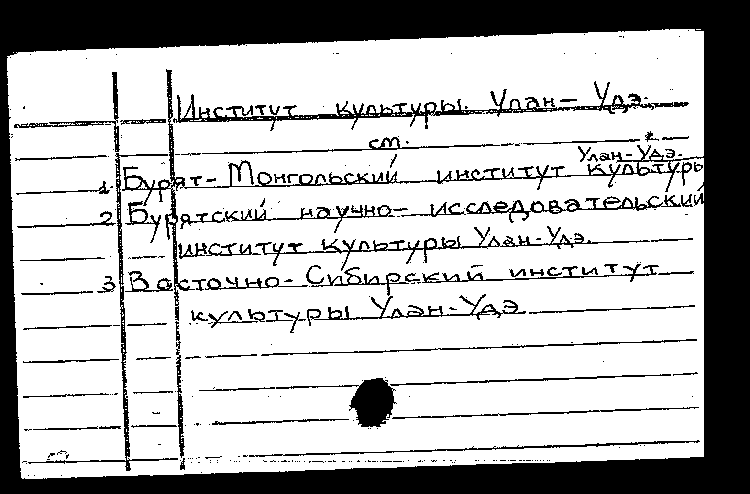 Институт культуры. Улан-Удэ.
см.
1. Бурят-Монгольский институт культуры Улан-Удэ.
2. Бурятский научно-исследовательский
институт культуры Улан-Удэ.
3 Восточно-Сибирский институт
культуры Улан-Удэ